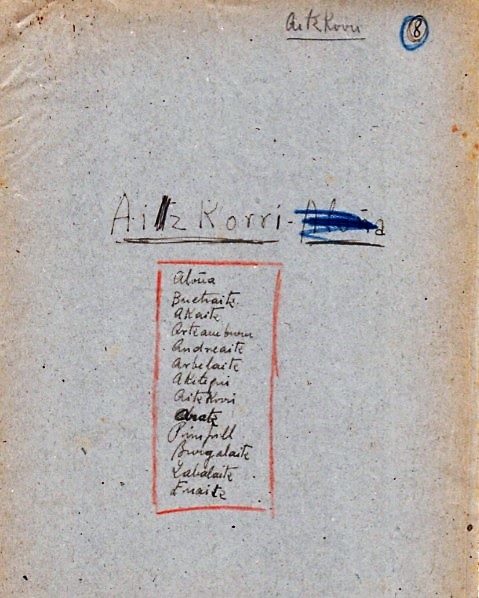 AitzKorri
8
Aitz Korri - Aloña
Aloña
Buetraitz
Akaitz
Artzanburu
Andreaitz
Arbelaitz
Aketegui
Aitz Korri
Aratz
Burgalaitz
Zabalaitz
Enaitz